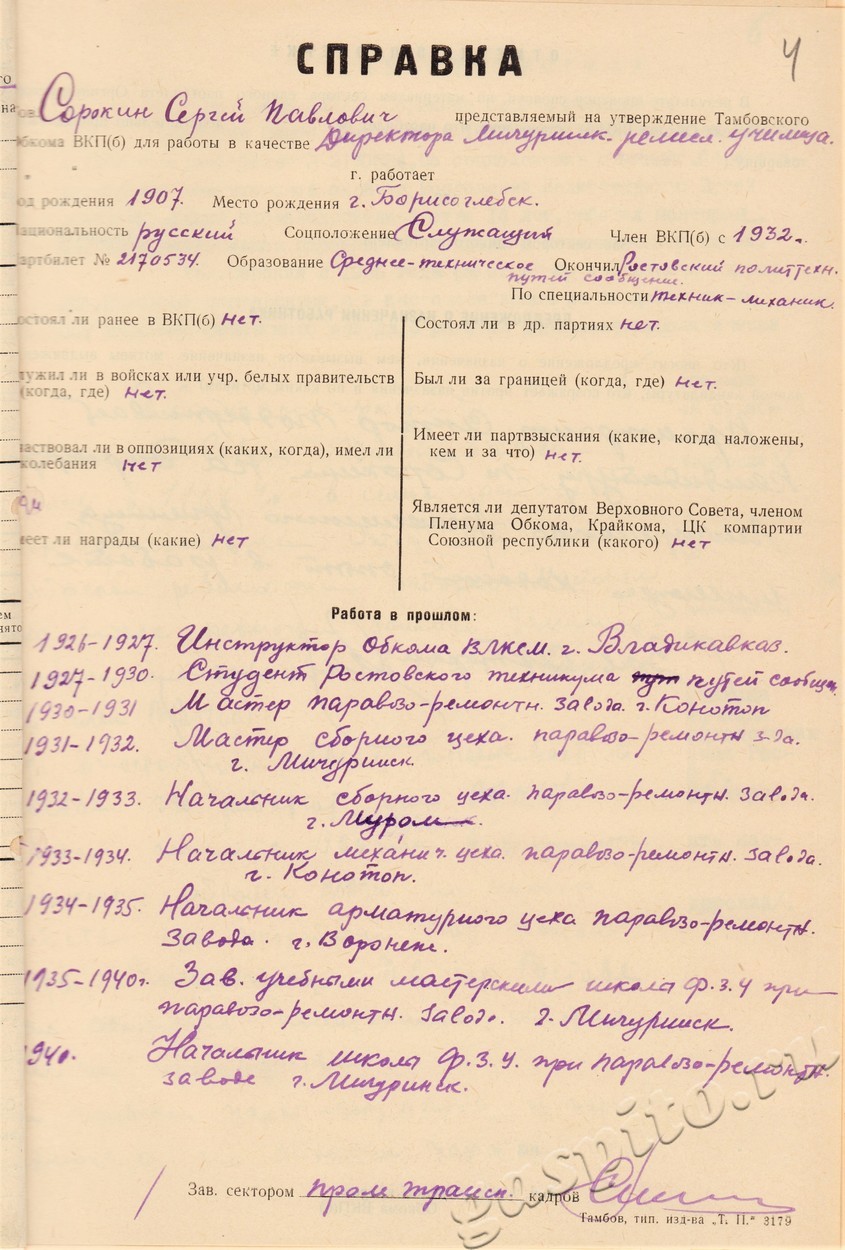 СПРАВКА
4
го
на
Сорокин Сергей Павлович представляемый на утверждение Тамбовского
бкома ВКП(б) для работы в качестве Директора Мичуринск. ремесл. училища.
г. работает
од рождения 1907. Место рождения г. Борисоглебск.
ациональность русский Соцположение Служащий Член ВКП(б) с 1932 г.
артбилет № 2170534. Образование Среднее-техническое Окончил Ростовский политехн.
путей сообщения.
По специальности техник-механик.
остоял ли ранее в ВКП(б) Нет.
Состоял ли в др. партиях нет.
лужил ли в войсках или учр. белых правительств
(когда, где) Нет.
Был ли за границей (когда, где) Нет.
аствовал ли в оппозициях (каких, когда), имел ли
колебания Нет
Имеет ли партвзыскания (какие, когда наложены,
кем и за что) нет.
еет ли награды (какие) Нет
Является ли депутатом Верховного Совета, членом
Пленума Обкома, Крайкома, ЦК компартии
Союзной республики (какого) нет
ем
нято
Работа в прошлом:
1926-1927. Инструктор Обкома ВЛКСМ. г. Владикавказ.
1927-1930. Студент Ростовского техникума пут путей сообщен.
1930-1931 Мастер паравозо-ремонтн. завода. г. Конотоп
1931-1932. Мастер сборного цеха. паравозо-ремонтн з-да.
г. Мичуринск.
1932-1933. Начальник сборного цеха. паравозо-ремонтн. завода.
г. Муром.
1933-1934. Начальник механич. цеха. паравозо-ремонтн. завода.
г. Конотоп.
1934-1935. Начальник арматурного цеха паравозо-ремонтн.
завода. г. Воронеж.
1935-1940г. Зав. учебными мастерскими школа Ф.З.У при
паравозо-ремонтн. заводе. г. Мичуринск.
940. Начальник школа Ф.З.У. при паравозо-ремонтн.
заводе г. Мичуринск.
Зав. сектором пром трансп. кадров
Тамбов, тип. изд-ва „Т. П.“ 3179
gaspito.ru